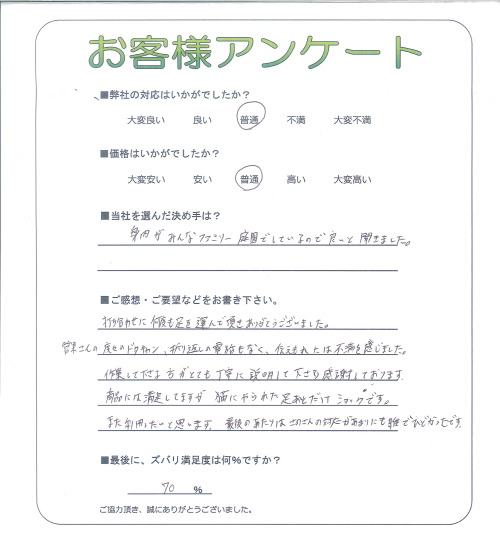 お客様アンケート
■弊社の対応はいかがでしたか?
大変良い 良い 普通 不満 大変不満
■価格はいかがでしたか?
大変安い 安い 普通 高い 大変高い
■当社を選んだ決め手は?
身内がみんなファミリー庭園でしているので良いと聞きました。
■ご感想・ご要望などをお書き下さい。
打ち合わせに何度も足を運んで頂きありがとうございました。
さんの のドタキャン、折り返しの電話もなく、 には不満を感じました。
作業して下さる方がとても丁寧に説明して下さり感謝しております。
商品には満足してますが 猫にやられた足あとだけショックです。
また利用したいと思います。最後のあたりは さんの対応があまりにも雑でひどかったです。
■最後に、ズバリ満足度は何%ですか?
70 %
ご協力頂き、誠にありがとうございました。